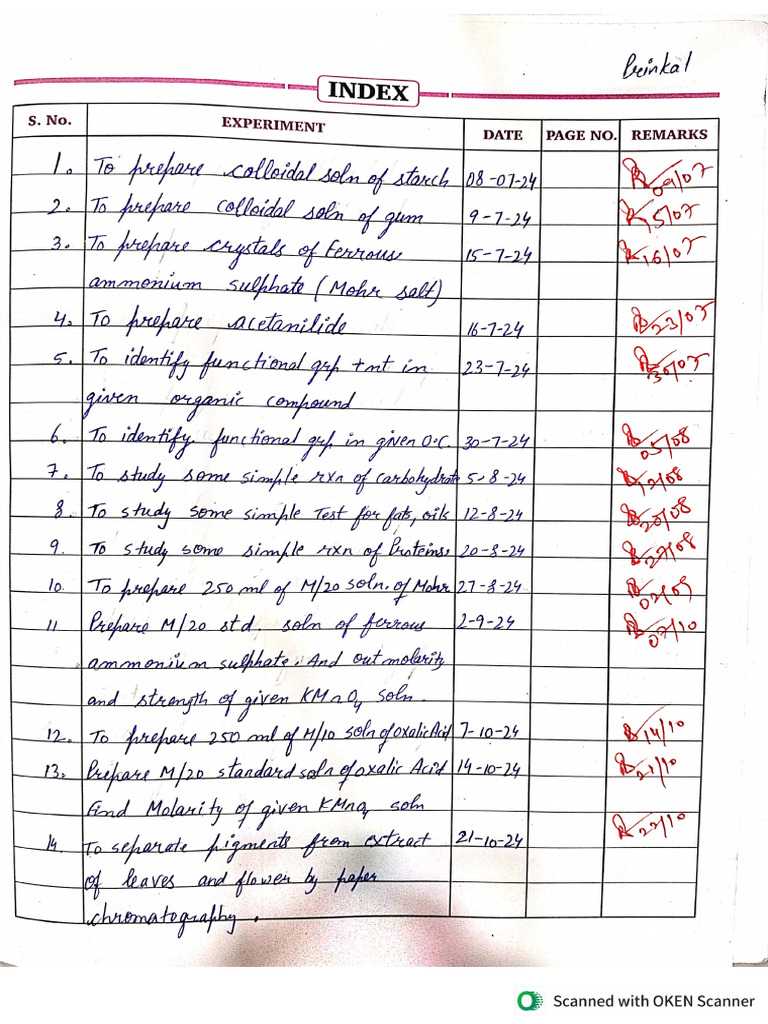 Prinkal
INDEX
S. No. EXPERIMENT DATE PAGE NO. REMARKS
1. To prepare colloidal soln of starch 08-07-24 09/07
2. To prepare colloidal soln of gum 9-7-24 15/07
3. To prepare crystals of Ferrous 15-7-24 16/07
ammonium sulphate (Mohr salt)
4. To prepare acetanilide 16-7-24 23/07
5. To identify functional grp +nt in 23-7-24 30/07
given organic compound
6. To identify functional grp in given O.C. 30-7-24 05/08
7. To study some simple rxn of carbohydrate 5-8-24 12/08
8. To study some simple Test for fats, oils 12-8-24 20/08
9. To study some simple rxn of Proteins 20-8-24 27/08
10. To prepare 250 ml of M/20 soln. of Mohr 27-8-24 02/09
11 Prepare M/20 std. soln of ferrous 2-9-24 07/10
ammonium sulphate. And out molarity
and strength of given KMnO4 soln.
12. To prepare 250 ml of M/10 soln of oxalic Acid 7-10-24 14/10
13. Prepare M/20 standard soln of oxalic Acid 14-10-24 21/10
find Molarity of given KMnO4 soln
14. To separate pigments from extract 21-10-24 22/10
of leaves and flower by paper
chromatography.
Scanned with OKEN Scanner